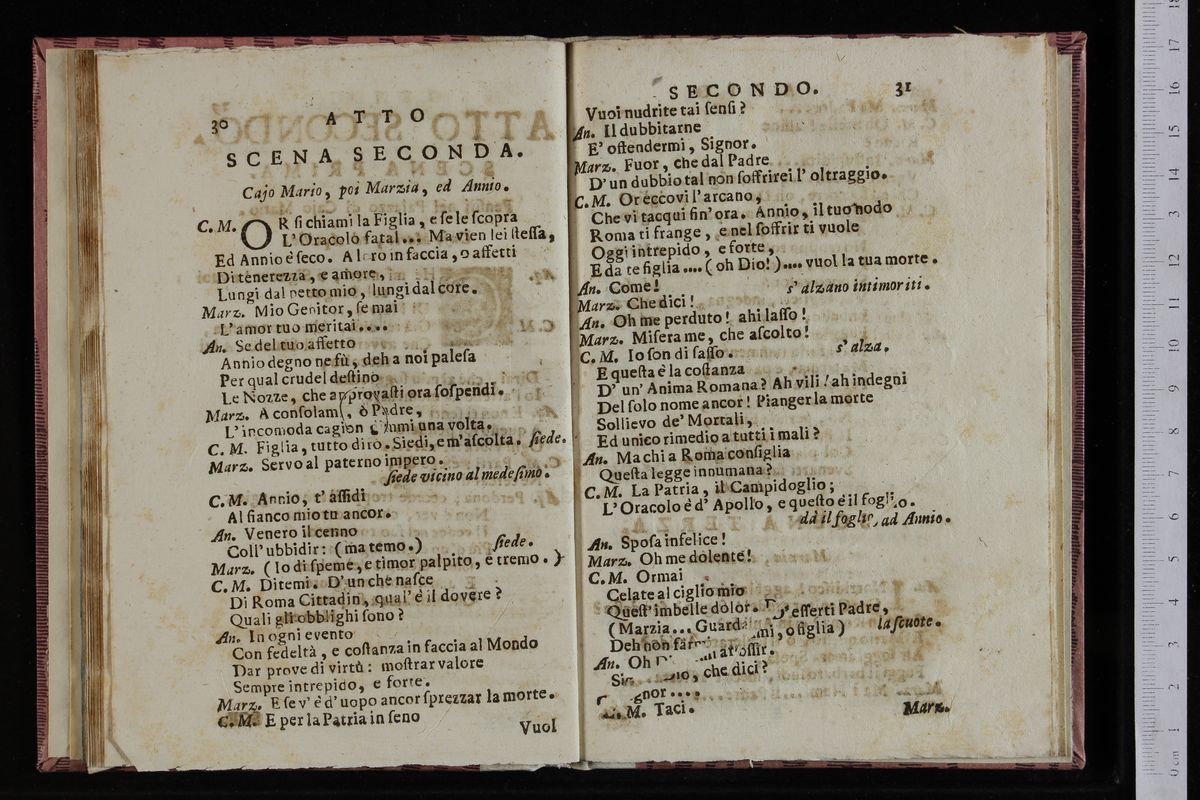 30
ATTO
SCENA SECONDA.
Cajo Mario, poi Marzia, ed Annio.
C. M. OR si chiami la Figlia, e se le scopra
L'Oracolo fatal... Ma vien lei stessa,
Ed Annio è seco. A loro in faccia, o affetti
Di tenerezza, e amore,
Lungi dal petto mio, lungi dal core.
Marz. Mio Genitor, se mai
L'amor tuo meritai....
An. Se del tuo affetto
Annio degno ne fù, deh a noi palesa
Per qual crudel destino
Le Nozze, che approvasti ora sospendi.
Marz. A consolarmi, ò Padre,
L'incomoda cagion dimmi una volta.
C. M. Figlia, tutto dirò. Siedi, e m'ascolta. siede.
Marz. Servo al paterno impero.
siede vicino al medesimo.
C. M. Annio, t'assidi
Al fianco mio tu ancor.
An. Venero il cenno
Coll'ubbidir: (ma temo.) siede.
Marz. (Io di speme, e timor palpito, e tremo.)
C. M. Ditemi. D'un che nasce
Di Roma Cittadin, qual'è il dovere?
Quali gli obblighi sono?
An. In ogni evento
Con fedeltà, e costanza in faccia al Mondo
Dar prove di virtù: mostrar valore
Sempre intrepido, e forte.
Marz. E se v'è d'uopo ancor sprezzar la morte.
C. M. E per la Patria in seno
Vuol
SECONDO. 31
Vuoi nudrite tai sensi?
An. Il dubbitarne
E' ostendermi, Signor.
Marz. Fuor, che dal Padre
D'un dubbio tal non soffrirei l'oltraggio.
C. M. Or eccovi l'arcano,
Che vi tacqui fin'ora. Annio, il tuo nodo
Roma ti frange, e nel soffrir ti vuole
Oggi intrepido, e forte,
E da te figlia.... (oh Dio!).... vuol la tua morte.
An. Come! s'alzano intimoriti.
Marz. Che dici!
An. Oh me perduto! ahi lasso!
Marz. Misera me, che ascolto!
C. M. Io son di sasso. s'alza.
E questa è la costanza
D'un'Anima Romana? Ah vili! ah indegni
Del solo nome ancor! Pianger la morte
Sollievo de' Mortali,
Ed unico rimedio a tutti i mali?
An. Ma chi a Roma consiglia
Questa legge innumana?
C. M. La Patria, il Campidoglio;
L'Oracolo è d'Apollo, e questo è il foglio.
dà il foglio, ad Annio.
An. Sposa infelice!
Marz. Oh me dolente!
C. M. Ormai
Celate al ciglio mio
Quest'imbelle dolor. esserti Padre,
(Marzia... o figlia) la scuote.
Deh non
An. Oh che dici?
C. M. Taci.
Marz.